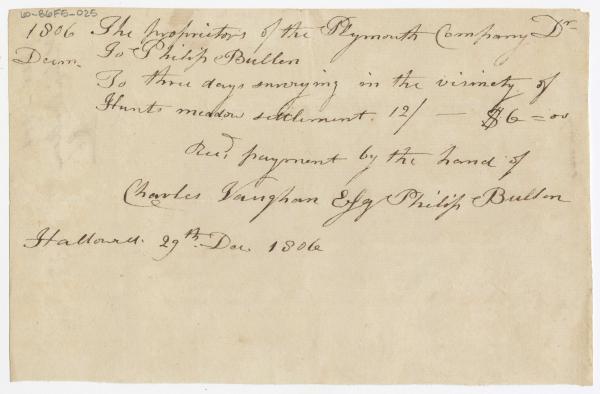 6-86F5-025
1806 The proprietors of the Plymouth Company Dr
Decm. To Philip Bullen
To three days surveying in the visinety of
Hunts meadow settlement. 12/ — $6=00
Recd payment by the hand of
Charles Vaughan Esq Philip Bullen
Hallowell 29th Dec 1806